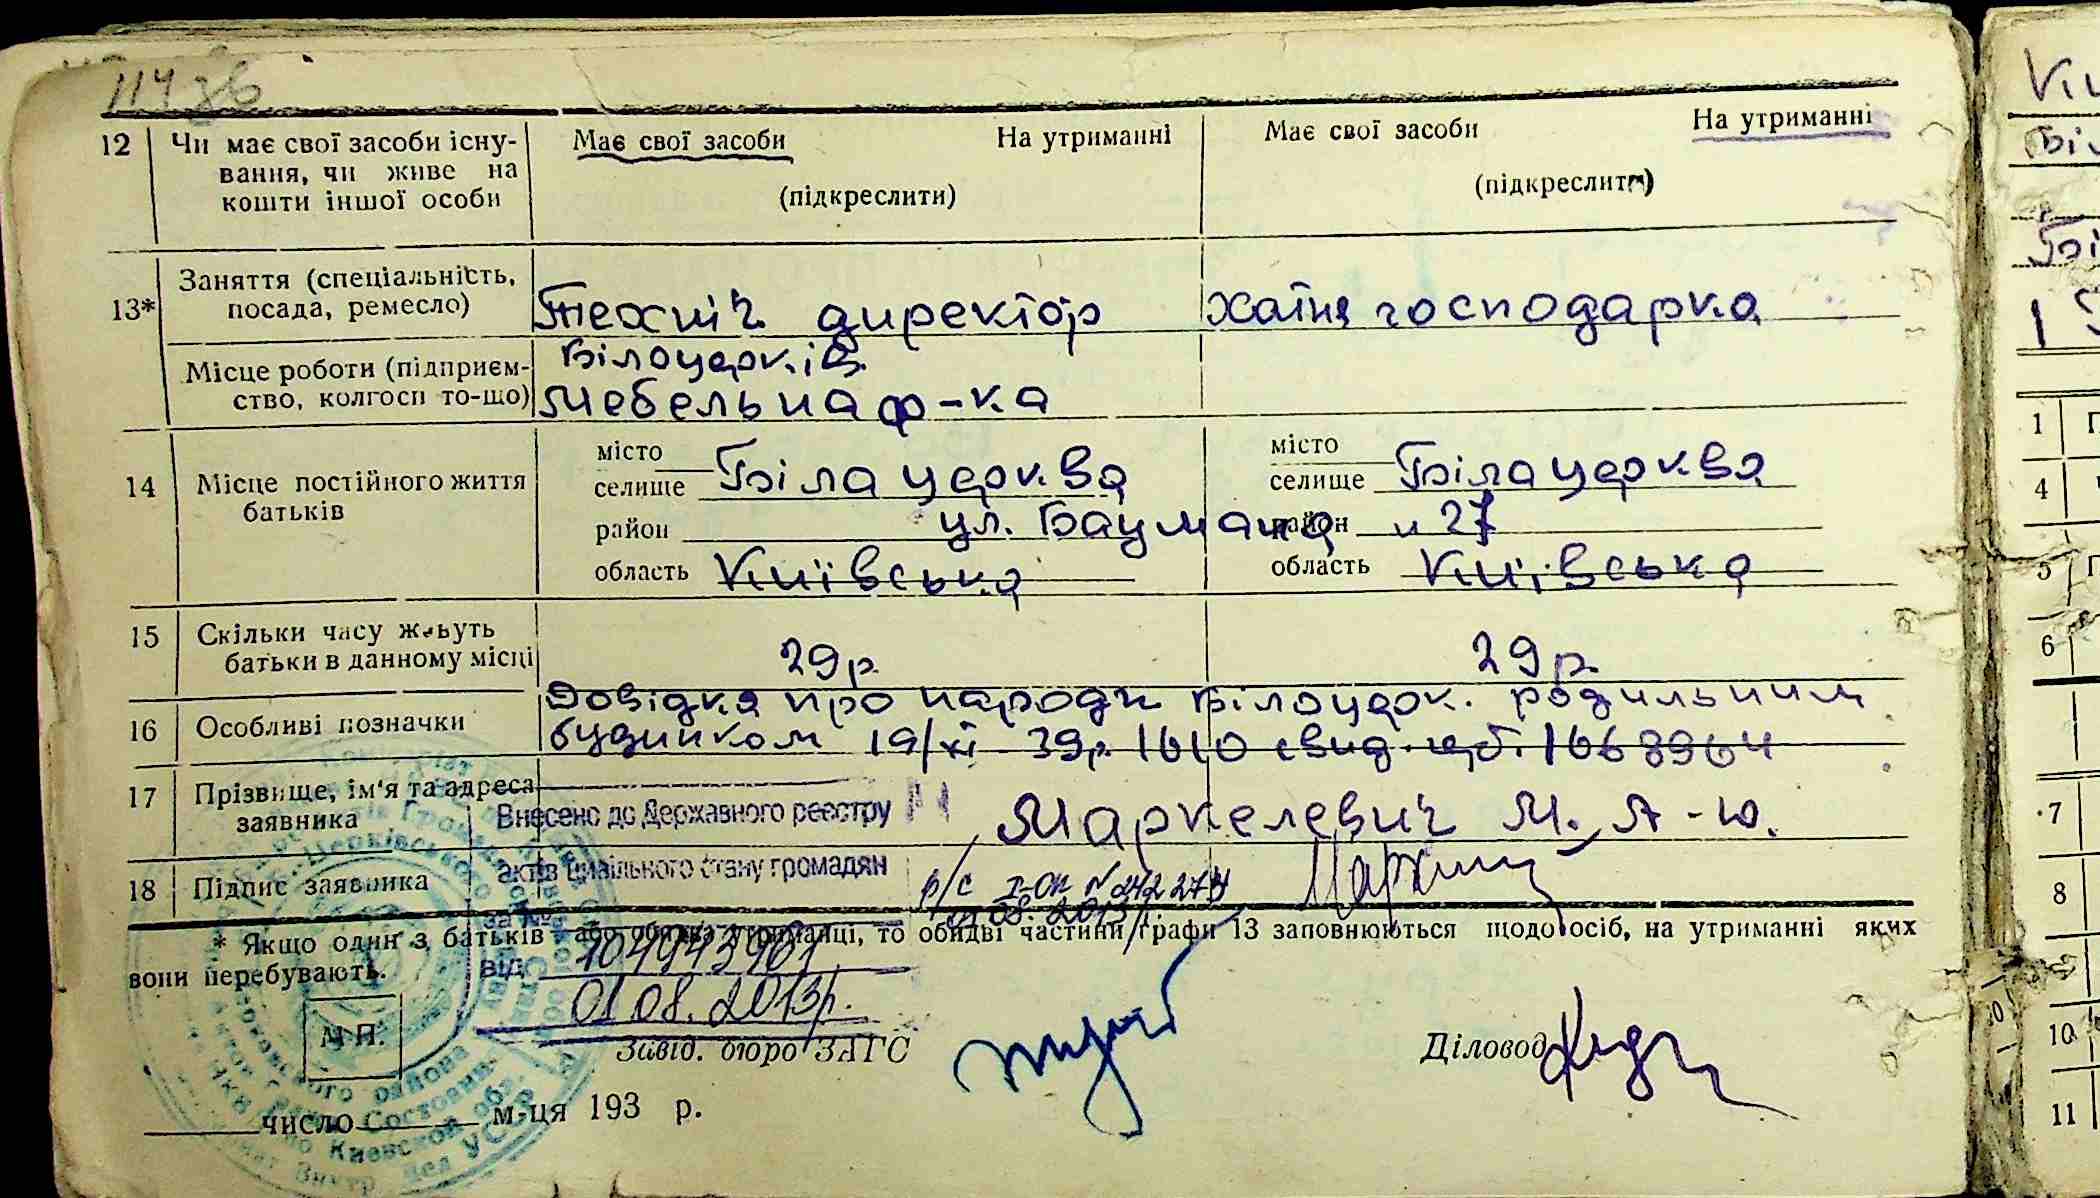 114 зв
12 Чи має свої засоби існу- Має свої засоби На утриманні Має свої засоби На утриманні
вання, чи живе на (підкреслити) (підкреслити)
кошти іншої особи
13* Заняття (спеціальність, посада, ремесло) Техніч директор Хатня господарка
Місце роботи (підприєм- Білоцерків.
ство, колгосп то-що) Мебельна ф-ка
14 Місце постійного життя батьків
місто селище Біла церква місто селище Біла церква
район ул. Баумана район н 27
область Київська область Київська
15 Скільки часу живуть батьки в данному місці 29р 29р.
16 Особливі позначки Довідка про народж Білоцерк. родильним
будинком 19/хі 39р. 1610 свид.
17 Прізвище, ім'я та адреса заявника Маркелевич М. А-ю.
Внесено до Державного реєстру
18 Підпис заявника актів цивільного стану громадян
р/с І-ОК N 242274
08. 2013
за №
* Якщо один з батьків або обидва утриманці, то обидві частини графи 13 заповнюються щодо осіб, на утриманні яких
вони перебувають. від
01.08.2013р.
М.П.
Завід. бюро ЗАГС Діловод
число м-ця 193 р.
1
4
5
6
7
8
9
10
11